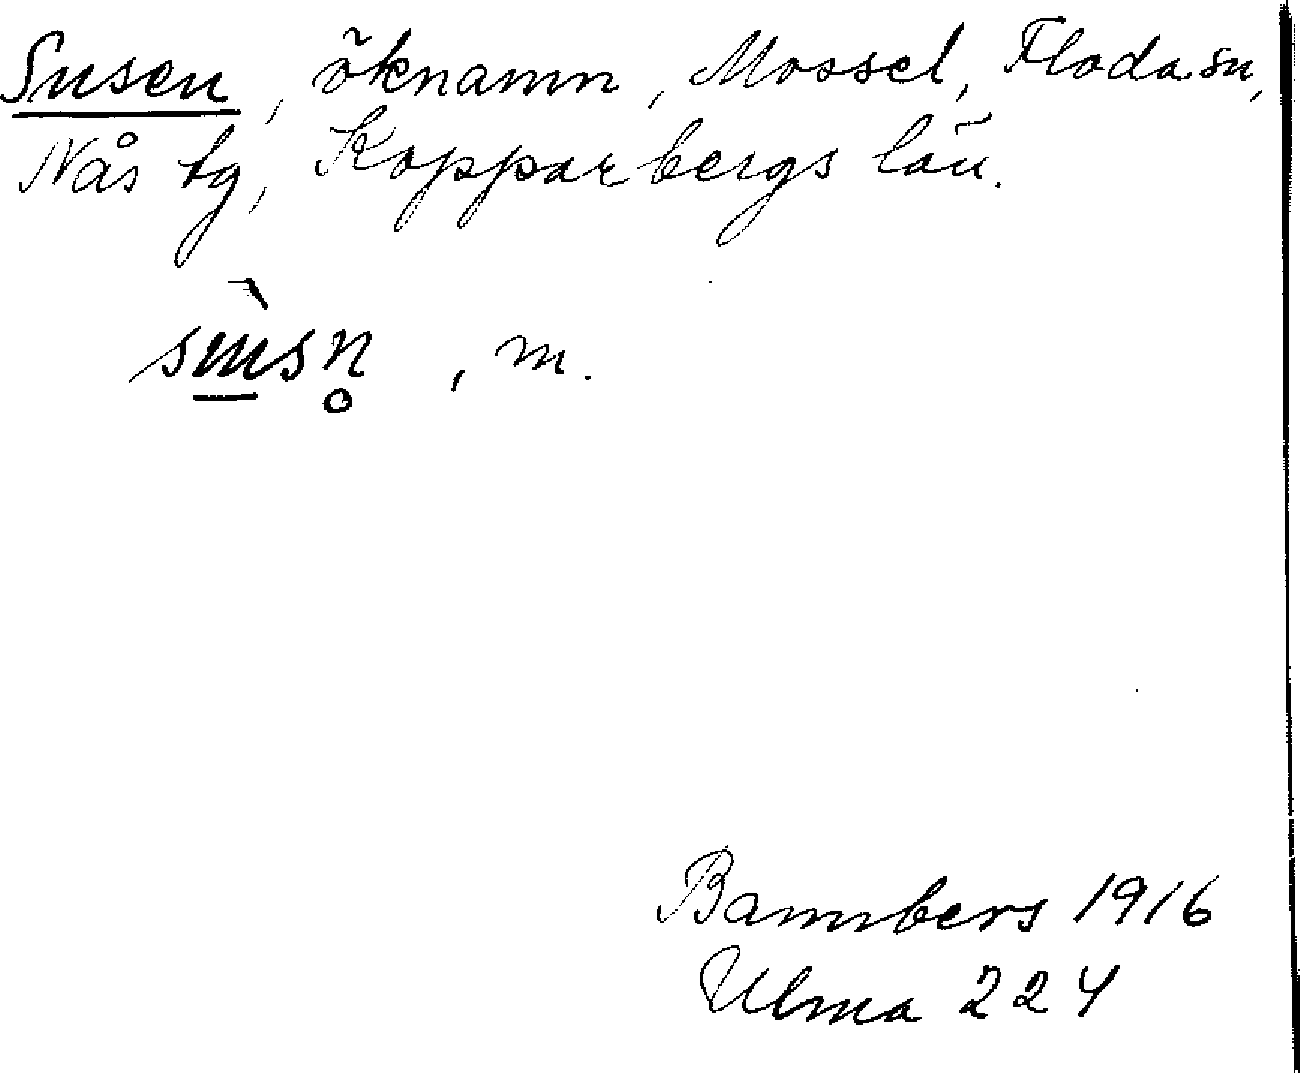 Susen, öknamn, Mossel, Floda sn,
Nås tg, Kopparbergs län.
, m.
Bannbers 1916
Ulma 224